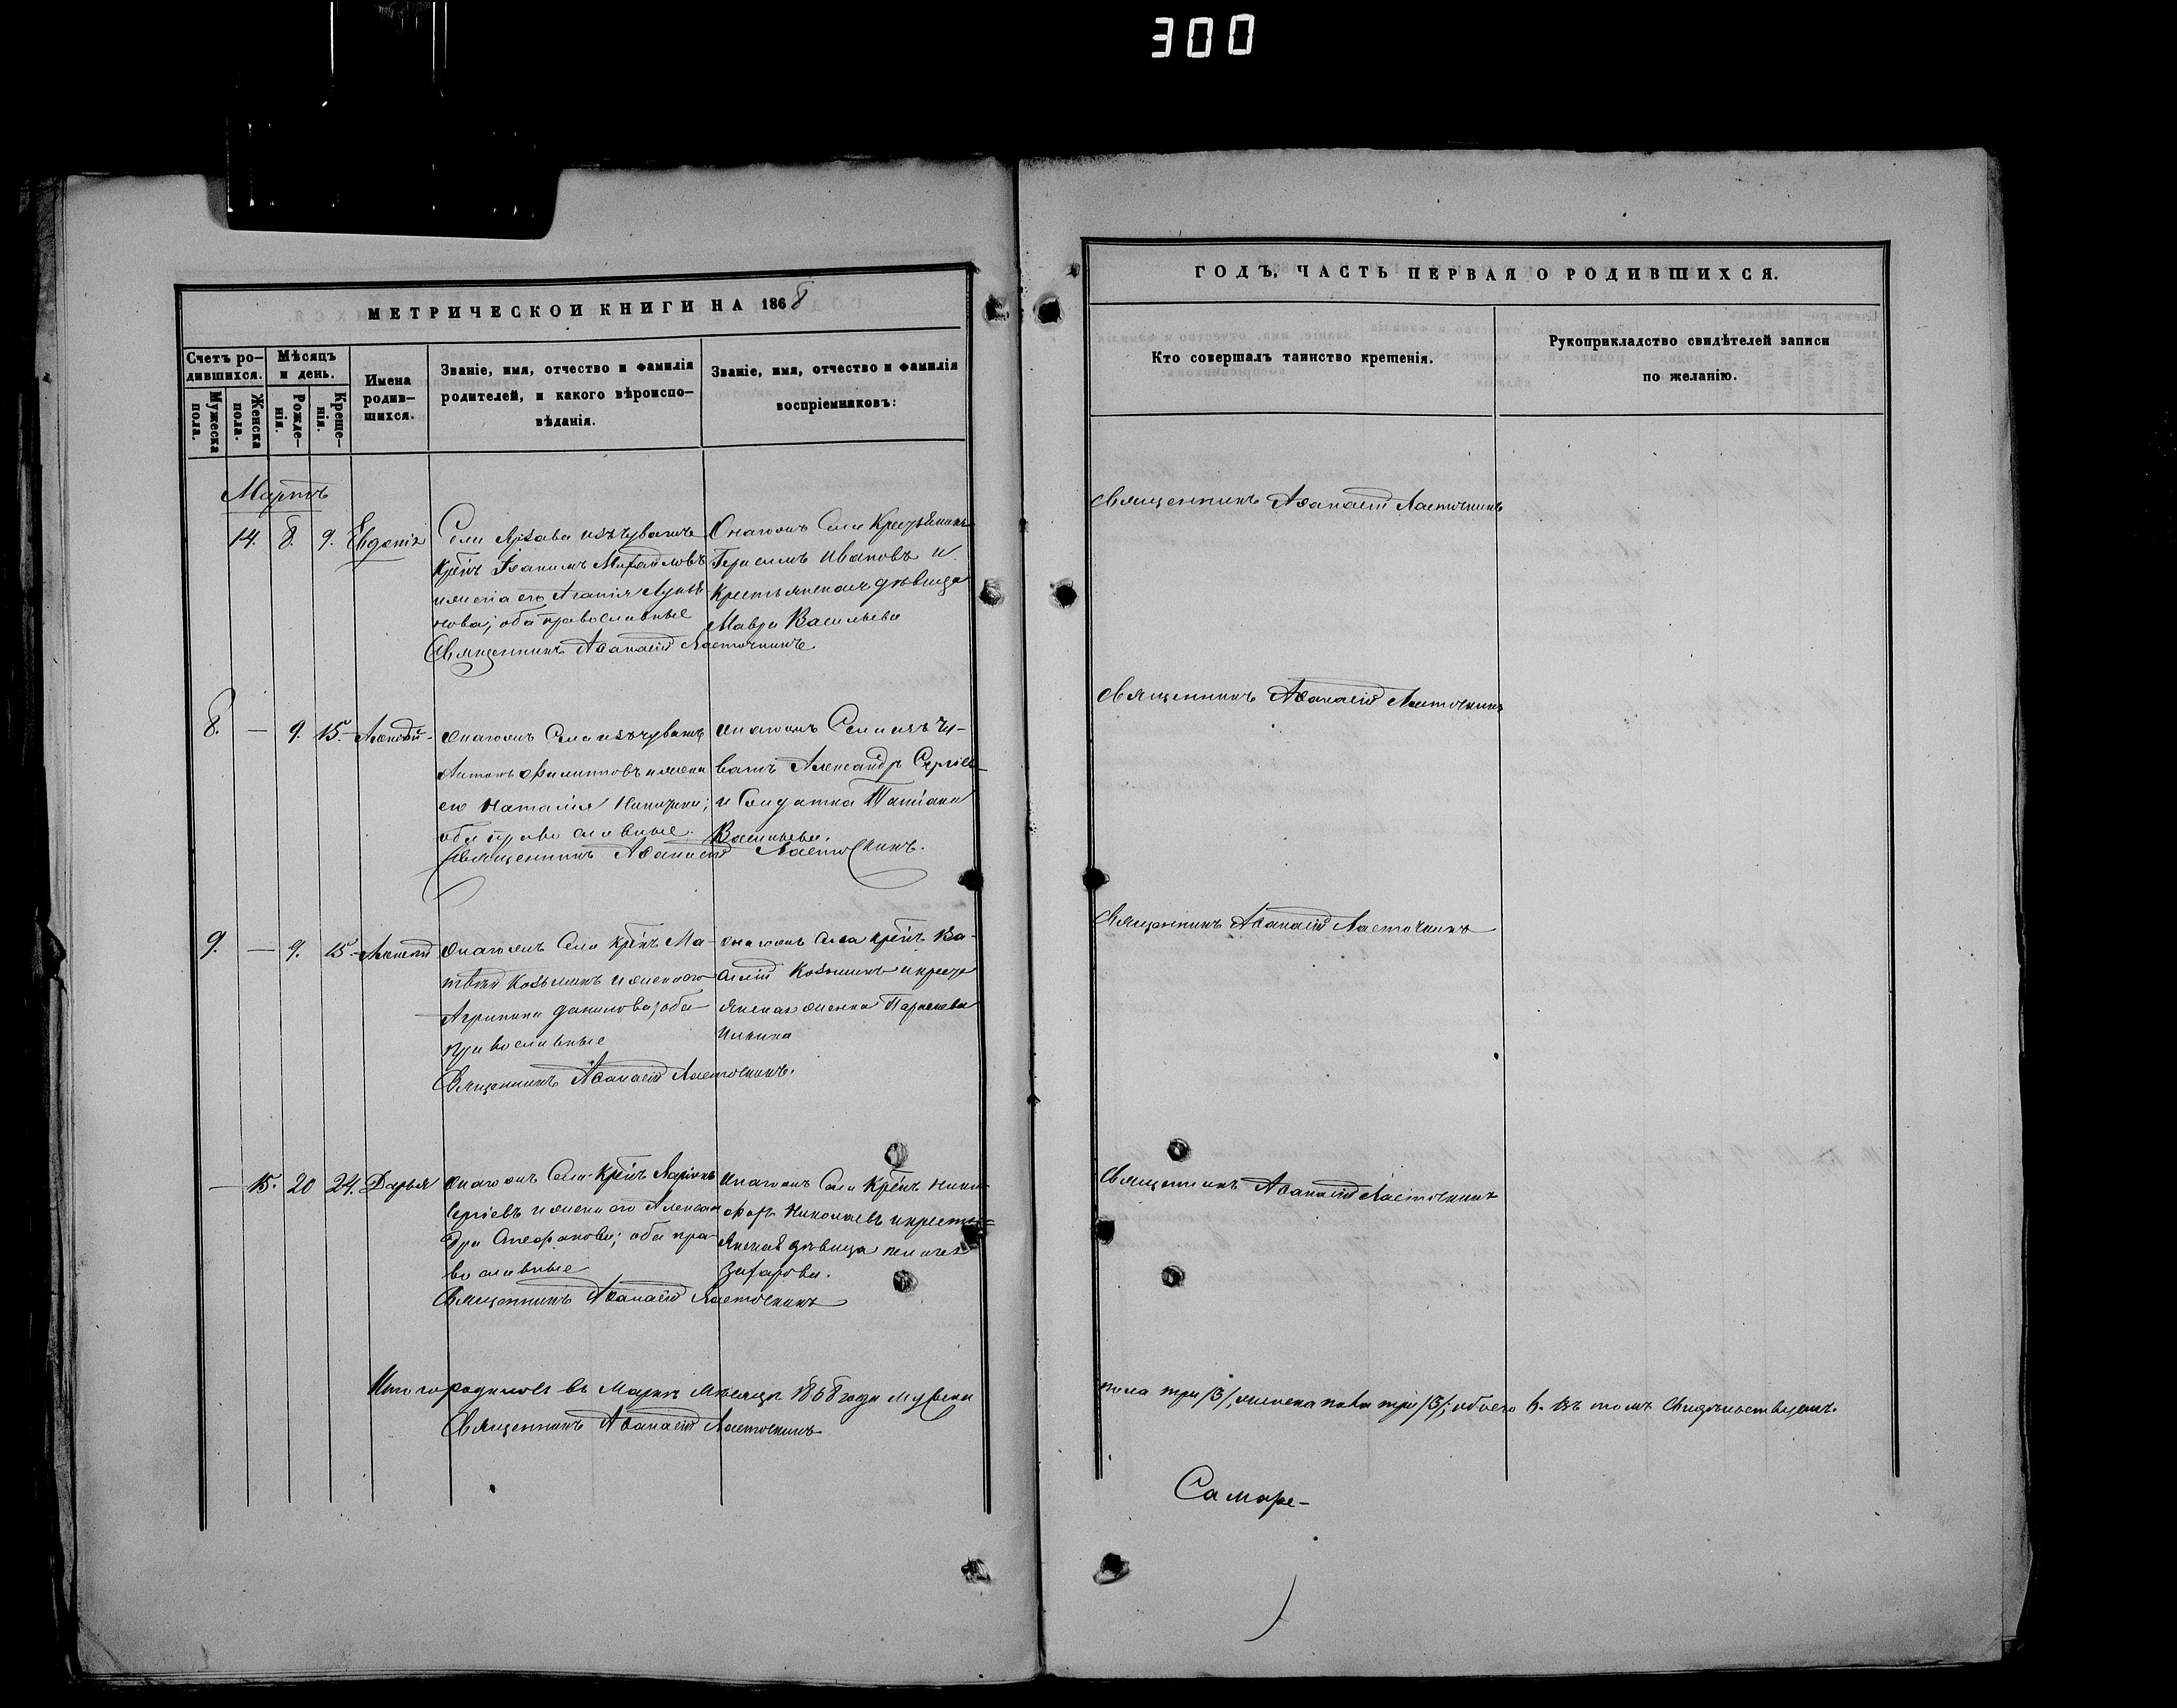 300
МЕТРИЧЕСКОЙ КНИГИ НА 1868
Счетъ ро-
дившихся.
Мужеска
пола.
Женска
пола.
Мѣсяцъ
и день.
Рожде-
нія.
Креще-
нія.
Имена
родив-
шихся.
Званіе, имя, отчество и фамилія
родителей, и какого вѣроиспо-
вѣданія.
Званіе, имя, отчество и фамилія
воспріемниковъ:
Мартъ
14. 8. 9. Евдокія
Села изъ чувашъ
Михайловъ
и жена его
нова; оба православные
Священникъ Аѳанасій Ласточкинъ
Онагожъ Села Крестьянинъ
Герасимъ Ивановъ и
крестьянская дѣвица
Мавра Васильева
8. — 9. 15. Алексѣй
Онагожъ Села изъ чувашъ
Антонъ Филипповъ и жена
его Наталія
оба православные.
Священникъ Аѳанасій Ласточкинъ.
Онагожъ Села изъ Чу-
вашъ Александръ Сергіевъ
и Солдатка Татіана
Васильева.
9. — 9. 15. Алексѣй
Онагожъ Села крѣпъ Ма-
твѣй Козьминъ и жена его
Агрипина Данилова; оба
православные
Священникъ Аѳанасій Ласточкинъ.
Онагожъ Села крѣпъ Ва-
силій Козьминъ и кресть
янская женка Параскева
Ильина
— 15. 20 24. Дарья
Онагожъ Села Крѣпъ Ларіонъ
Сергіевъ и жена его Алексан
дра Стефанова; оба пра-
вославные
Священникъ Аѳанасій Ласточкинъ
Онагожъ Села Крѣпъ Ники-
форъ Николаевъ и кресть=
янская дѣвица
Захарова.
Итого родилось въ Мартѣ мѣсяцѣ 1868 года мужска
Священникъ Аѳанасій Ласточкинъ
ГОДЪ, ЧАСТЬ ПЕРВАЯ О РОДИВШИХСЯ.
Кто совершалъ таинство крещенія.
Рукоприкладство свидѣтелей записи
по желанію.
Священникъ Аѳанасій Ласточкинъ
Священникъ Аѳанасій Ласточкинъ
Священникъ Аѳанасій Ласточкинъ
Священникъ Аѳанасій Ласточкинъ
пола три /3/, женска пола три /3/; обоего 6. Въ томъ Свидѣтельствуемъ.
Самаре-